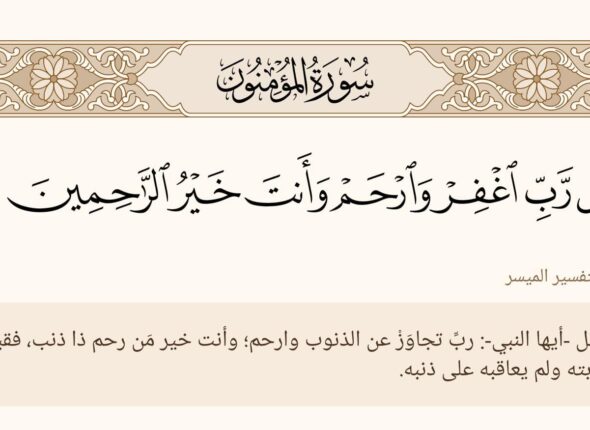 سُورَةُ المُؤْمِنُونَ
رَّبِّ ٱغْفِرْ وَٱرْحَمْ وَأَنتَ خَيْرُ ٱلرَّٰحِمِينَ
تفسير الميسر
-أيها النبي-: ربِّ تجاوَزْ عن الذنوب وارحم؛ وأنت خير مَن رحم ذا ذنب،
ولم يعاقبه على ذنبه.